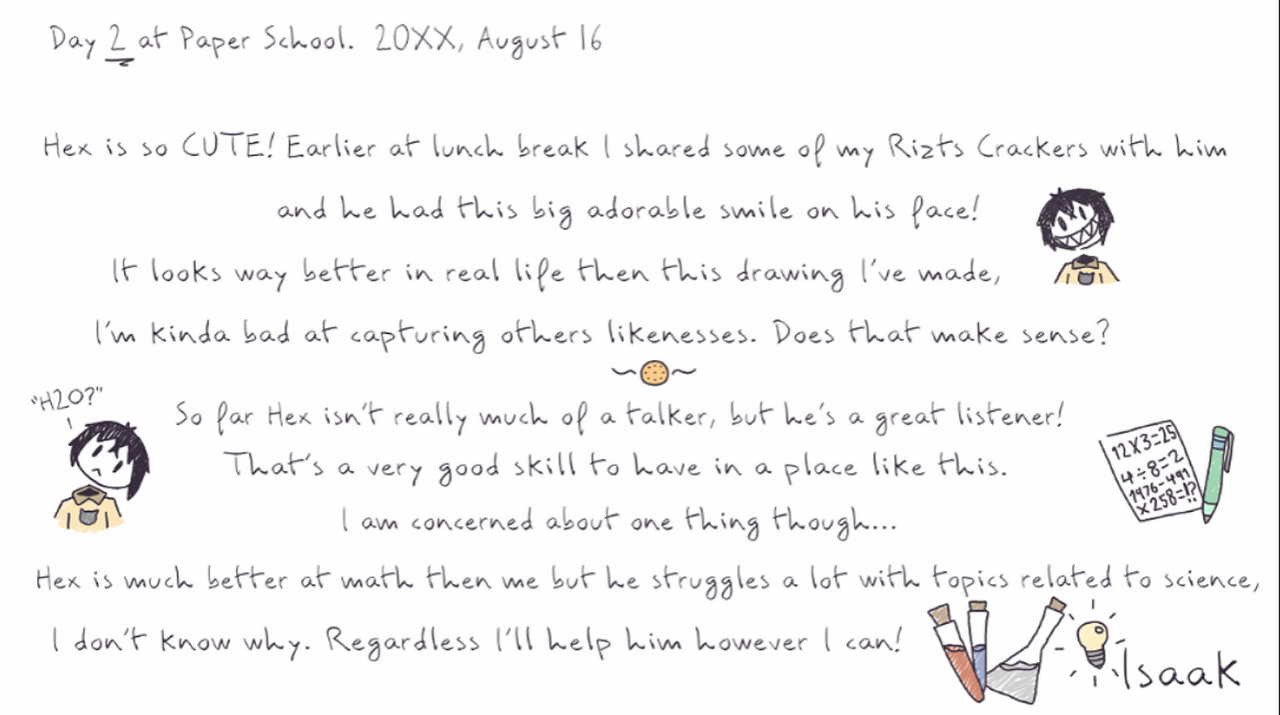 Day 2 at Paper School. 20XX, August 16
Hex is so CUTE! Earlier at lunch break I shared some of my Rizts Crackers with him
and he had this big adorable smile on his face!
It looks way better in real life then this drawing I've made,
I'm kinda bad at capturing others likenesses. Does that make sense?
"H2O?"
So far Hex isn't really much of a talker, but he's a great listener!
That's a very good skill to have in a place like this.
I am concerned about one thing though...
12X3=25
4÷8=2
1476-491
X258=!?
Hex is much better at math then me but he struggles a lot with topics related to science,
I don't know why. Regardless I'll help him however I can!
Isaak